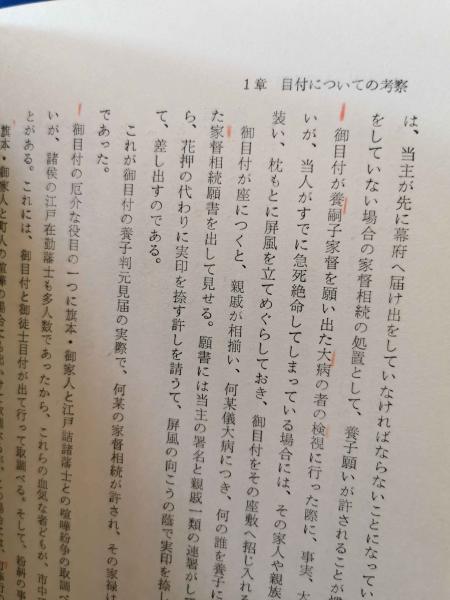 1章 目付についての考察
は、当主が先に幕府へ届け出をしていなければならないことになってい
をしていない場合の家督相続の処置として、養子願いが許されることが
御目付が養嗣子家督を願い出た大病の者の検視に行った際に、事実、大
いが、当人がすでに急死絶命してしまっている場合には、その家人や親族
装い、枕もとに屏風を立てめぐらしておき、御目付をその座敷へ招じ入れる
御目付が座につくと、親戚が相揃い、何某儀大病につき、何の誰を養子に
た家督相続願書を出して見せる。願書には当主の署名と親戚一類の連署がし
ら、花押の代わりに実印を捺す許しを請うて、屏風の向こうの蔭で実印を捺
て、差し出すのである。
これが御目付の養子判元見届の実際で、何某の家督相続が許され、その家禄
であった。
御目付の厄介な役目の一つに旗本・御家人と江戸詰諸藩士との喧嘩紛争の取調べ
いが、諸侯の江戸在勤藩士も多人数であったから、これらの血気な者どもが、市中
とがある。これには、御目付と御徒士目付が出て行って取調べる。そして、紛糾の事
旗本・御家人と町人の喧嘩の場合にも出